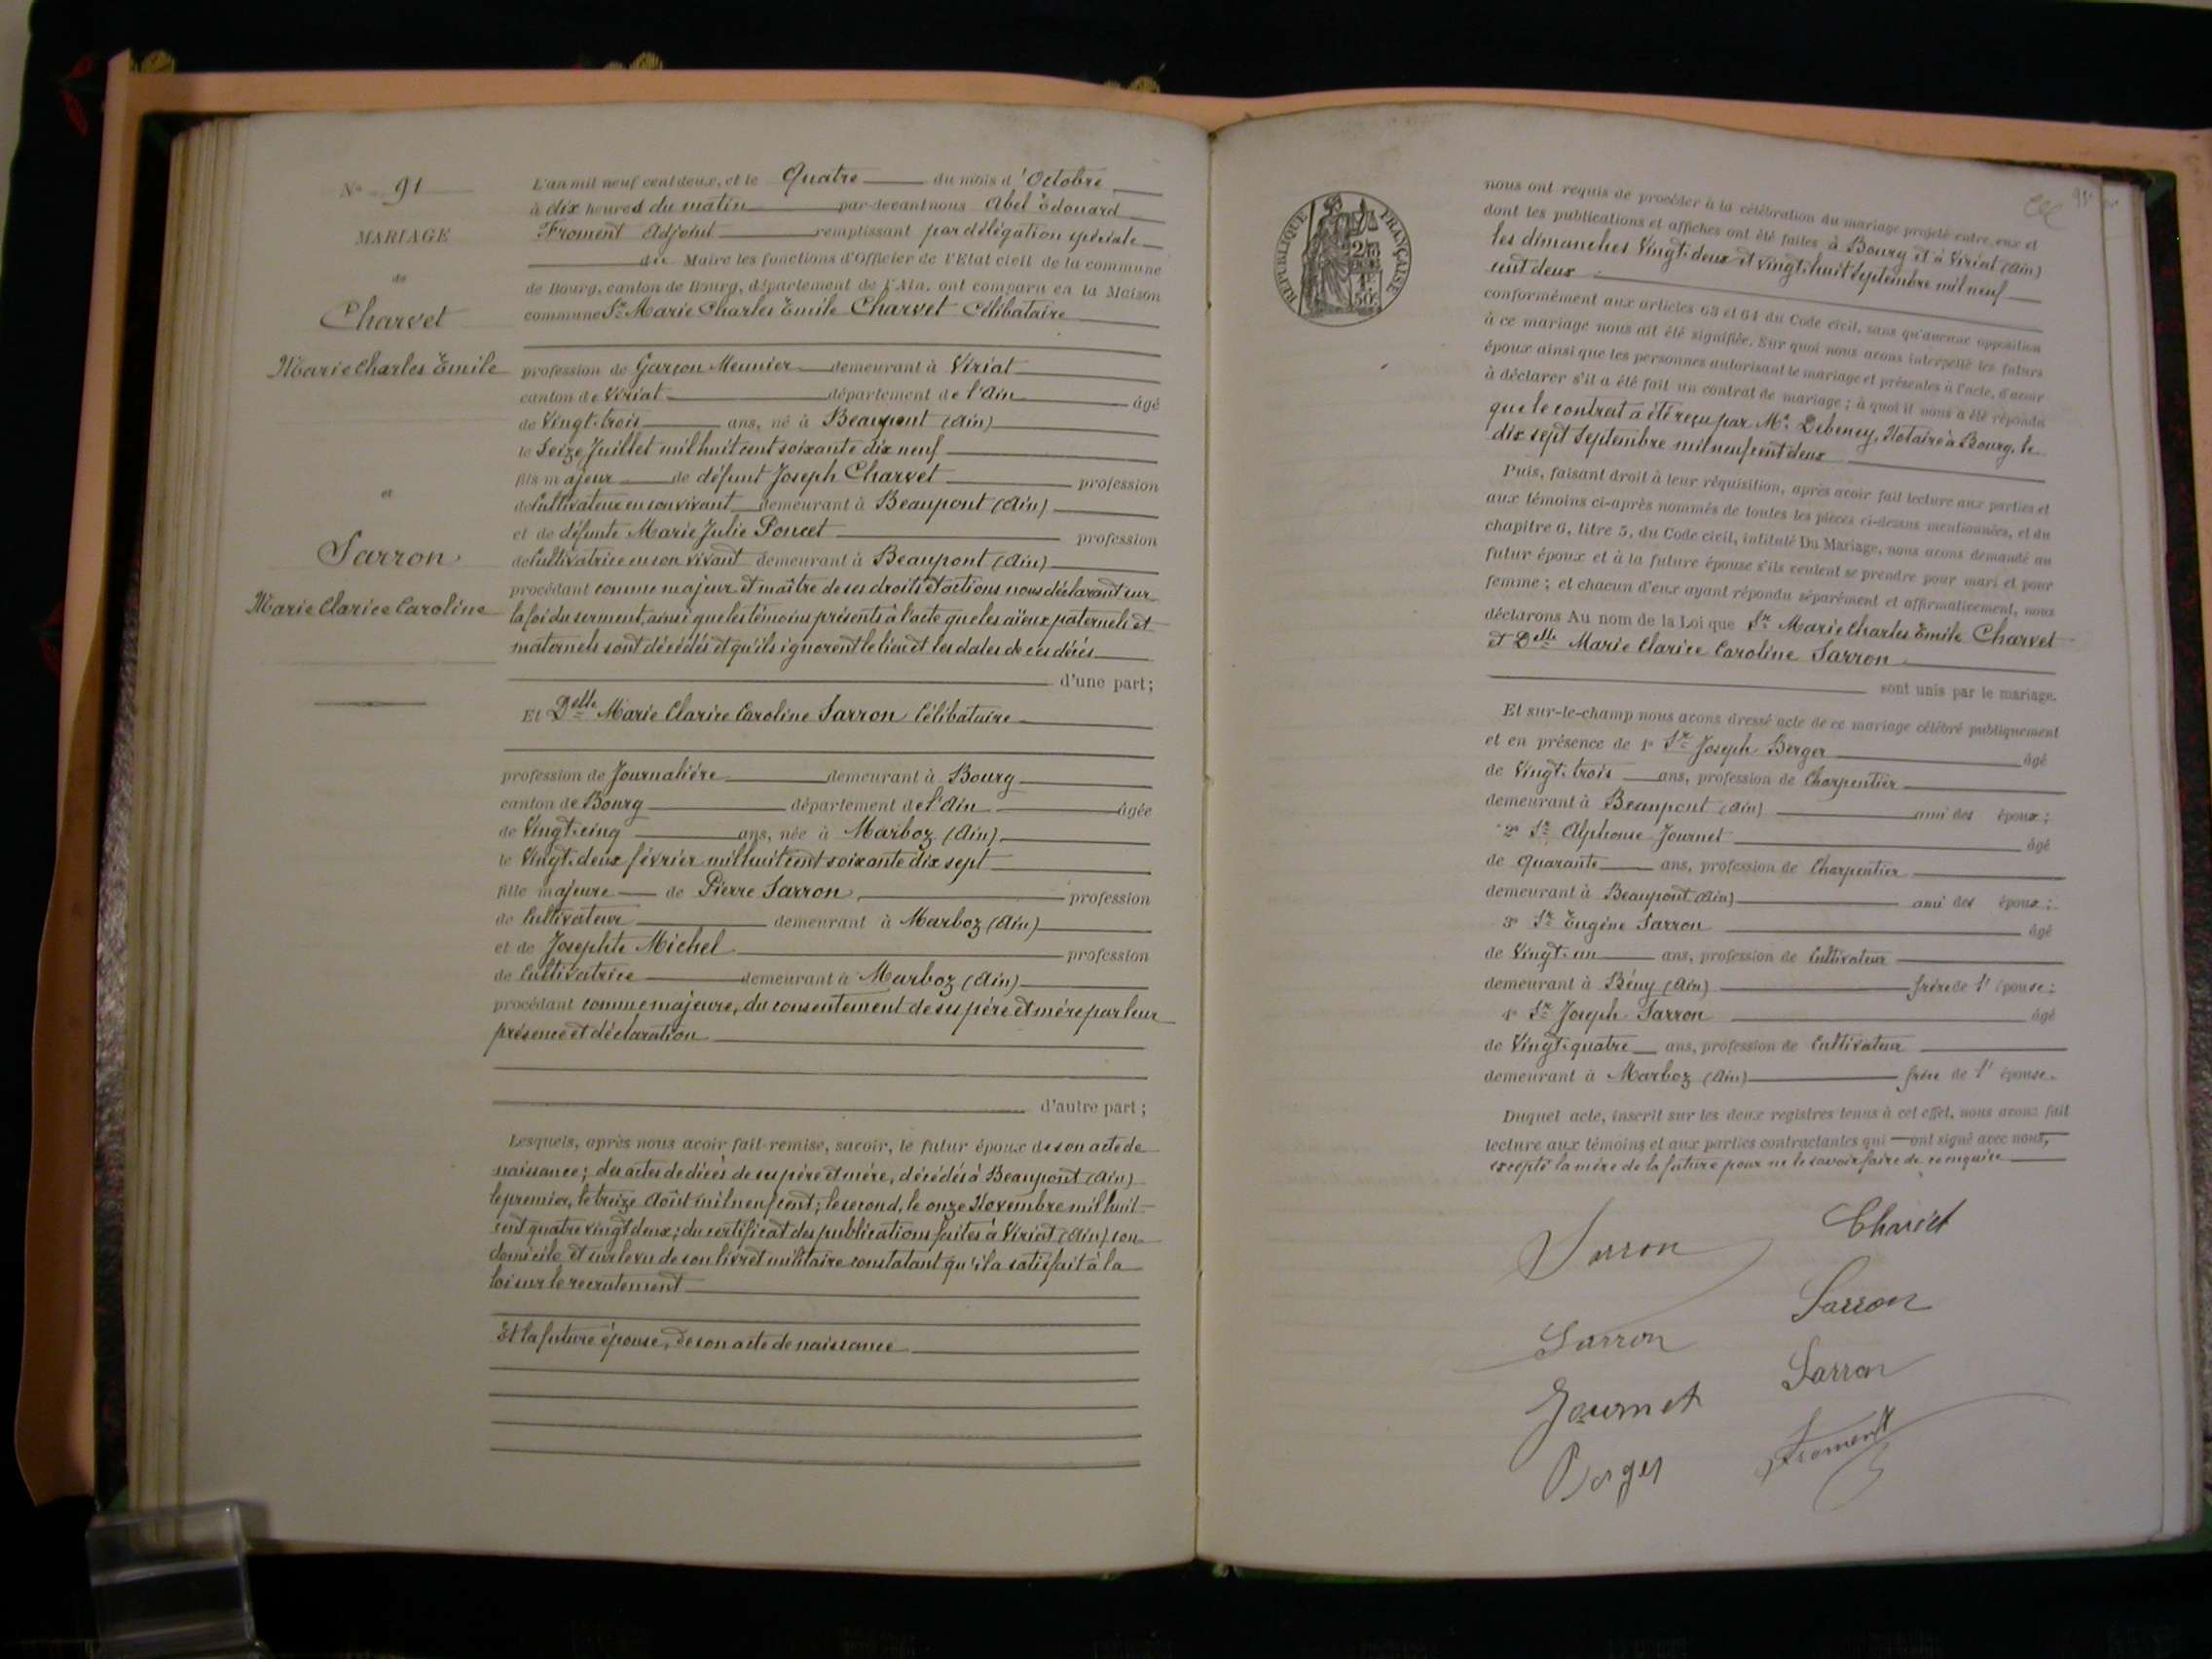 N° 91
MARIAGE
de
Charvet
Marie Charles Emile
et
Sarron
Marie Clarice Caroline
L'an mil neuf cent deux, et le Quatre du mois d'Octobre
à dix heures du matin par-devant nous Abel Edouard
Froment Adjoint remplissant par délégation spéciale
du Maire les fonctions d'Officier de l'Etat civil de la commune
de Bourg, canton de Bourg, département de l'Ain, ont comparu en la Maison
commune Sr Marie Charles Emile Charvet Célibataire
profession de Garçon Meunier demeurant à Viriat
canton de Viriat département de l'Ain âgé
de Vingt-trois ans, né à Beaupont (Ain)
le Seize Juillet mil huit cent soixante dix neuf
fils majeur de défunt Joseph Charvet profession
de Cultivateur en son vivant demeurant à Beaupont (Ain)
et de défunte Marie Julie Poncet profession
de Cultivatrice en son vivant demeurant à Beaupont (Ain)
procédant comme majeur et maître de ses droits et actions nous déclarant sur
la foi du serment, ainsi que les témoins présents à l'acte que les aïeux paternels et
maternels sont décédés et qu'ils ignorent le lieu et les dates de ces décès
d'une part;
Et Delle Marie Clarice Caroline Sarron Célibataire
profession de Journalière demeurant à Bourg
canton de Bourg département de l'Ain âgée
de Vingt-cinq ans, née à Marboz (Ain)
le Vingt-deux février mil huit cent soixante dix sept
fille majeure de Pierre Sarron, profession
de Cultivateur demeurant à Marboz (Ain)
et de Josephte Michel profession
de Cultivatrice demeurant à Marboz (Ain)
procédant comme majeure, du consentement de ses père et mère par leur
présence et déclaration
d'autre part;
Lesquels, après nous avoir fait remise, savoir, le futur époux de son acte de
naissance; des actes de décès de ses père et mère, décédés à Beaupont (Ain)
le premier, le treize Août mil neuf cent; le second, le onze Novembre mil huit
cent quatre vingt deux; du certificat des publications faites à Viriat (Ain) son
domicile et sur le vu de son livret militaire constatant qu'il a satisfait à la
loi sur le recrutement
Et la future épouse, de son acte de naissance
REPUBLIQUE FRANÇAISE
nous ont requis de procéder à la célébration du mariage projeté entre eux et
dont les publications et affiches ont été faites à Bourg et à Viriat (Ain)
les dimanches Vingt-deux et vingt-huit Septembre mil neuf
cent deux
conformément aux articles 63 et 64 du Code civil, sans qu'aucune opposition
à ce mariage nous ait été signifiée. Sur quoi nous avons interpellé les futurs
époux ainsi que les personnes autorisant le mariage et présentes à l'acte, d'avoir
à déclarer s'il a été fait un contrat de mariage; à quoi il nous a été répondu
que le contrat a été reçu par Me Debeney, Notaire à Bourg, le
dix sept Septembre mil neuf cent deux
Puis, faisant droit à leur réquisition, après avoir fait lecture aux parties et
aux témoins ci-après nommés de toutes les pièces ci-dessus mentionnées, et du
chapitre 6, titre 5, du Code civil, intitulé Du Mariage, nous avons demandé au
futur époux et à la future épouse s'ils veulent se prendre pour mari et pour
femme; et chacun d'eux ayant répondu séparément et affirmativement, nous
déclarons Au nom de la Loi que Sr Marie Charles Emile Charvet
et Delle Marie Clarice Caroline Sarron
sont unis par le mariage.
Et sur-le-champ nous avons dressé acte de ce mariage célébré publiquement
et en présence de 1° Sr Joseph Berger âgé
de Vingt-trois ans, profession de Charpentier
demeurant à Beaupont (Ain) ami des époux;
2° Sr Alphonse Journet âgé
de Quarante ans, profession de Charpentier
demeurant à Beaupont (Ain) ami des époux;
3° Sr Eugène Sarron âgé
de Vingt-un ans, profession de Cultivateur
demeurant à Bény (Ain) frère de l'épouse;
4° Sr Joseph Sarron âgé
de Vingt-quatre ans, profession de Cultivateur
demeurant à Marboz (Ain) frère de l'épouse.
Duquel acte, inscrit sur les deux registres tenus à cet effet, nous avons fait
lecture aux témoins et aux parties contractantes qui ont signé avec nous,
excepté la mère de la future pour ne le savoir faire de ce enquise
Sarron Charvet
Sarron
Sarron
Sarron
Journet
Berger Froment